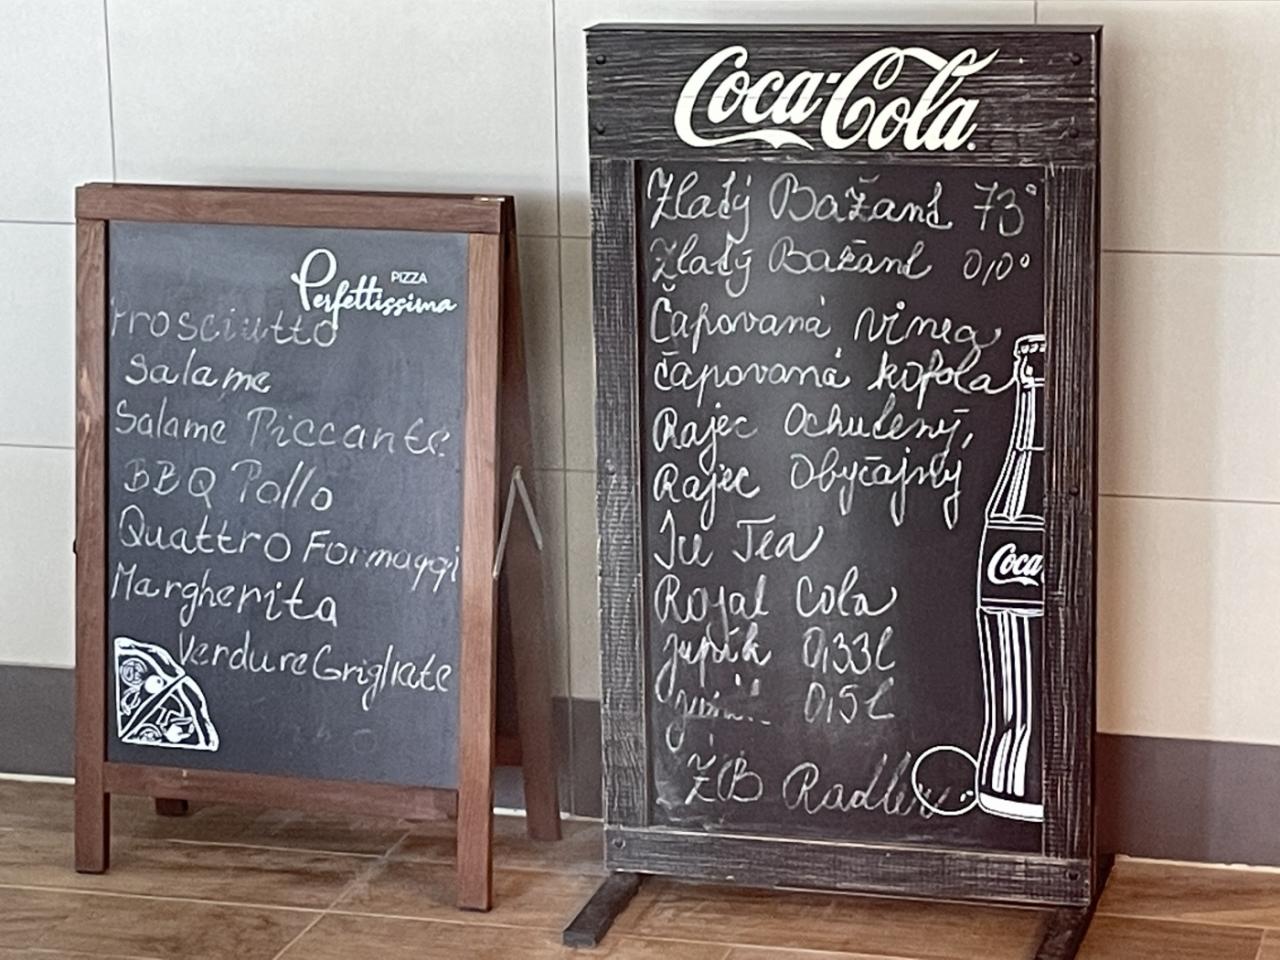 PIZZA
Perfettissima
Prosciutto
Salame
Salame Piccante
BBQ Pollo
Quattro Formaggi
Margherita
Verdure Grigliate
Coca-Cola
Zlatý Bažant 73°
Zlatý Bažant 0,0°
Čapovaná vinea
Čapovaná kofola
Rajec Ochutený,
Rajec Obyčajný
Ice Tea
Royal Cola
Jupík 0,33l
0,5l
ŽB Radler
Coca